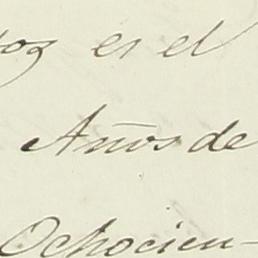 es el
Años de
Ochocien-